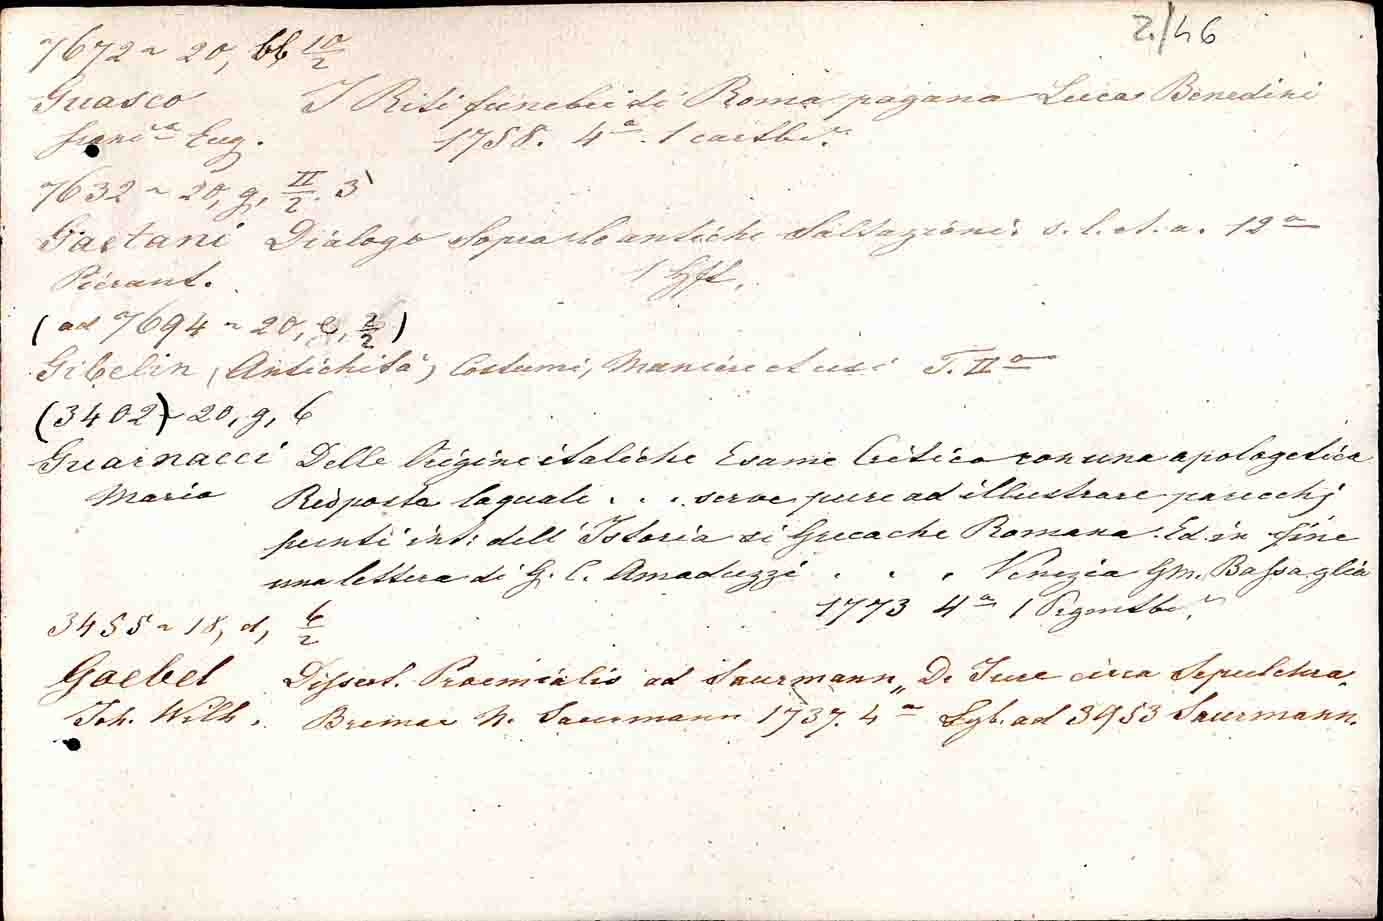 2./46
7672 ~ 20, bb 10/2
Guasco I Riti funebri di Roma pagana Lucca Benedini
Eug. 1758. 4ª. 1
7632 ~ 20, g, II/2. 3
Gaetani Dialogo Sopra le antiche Saltazioni. s. l. et. a. 12ª
Pierant. 1
(ad 7694 ~ 20, e, 2/2)
Gibelin, Antichità, Costumi, Maniere et usi T. IIª
(3402) ~ 20, g, 6
Guarnacci Delle Origine italiche Esame Critico con una apologetica
Mario Risposta la quale . . . serve pure ad illustrare parecchj
punti int: dell' Istoria si Greca che Romana. Ed in fine
una lettera di G. C. Amaduzzi . . . Venezia Gm. Bassaglia
1773 4ª 1
3455 ~ 18, d, 6/2
Goebel Dissert. Prooemialis ad Saurmann „De Jure circa Sepulchra.
Joh. Wilh. Bremae N. Saurmann 1737. 4ª Lgb. ad 3953 Saurmann.